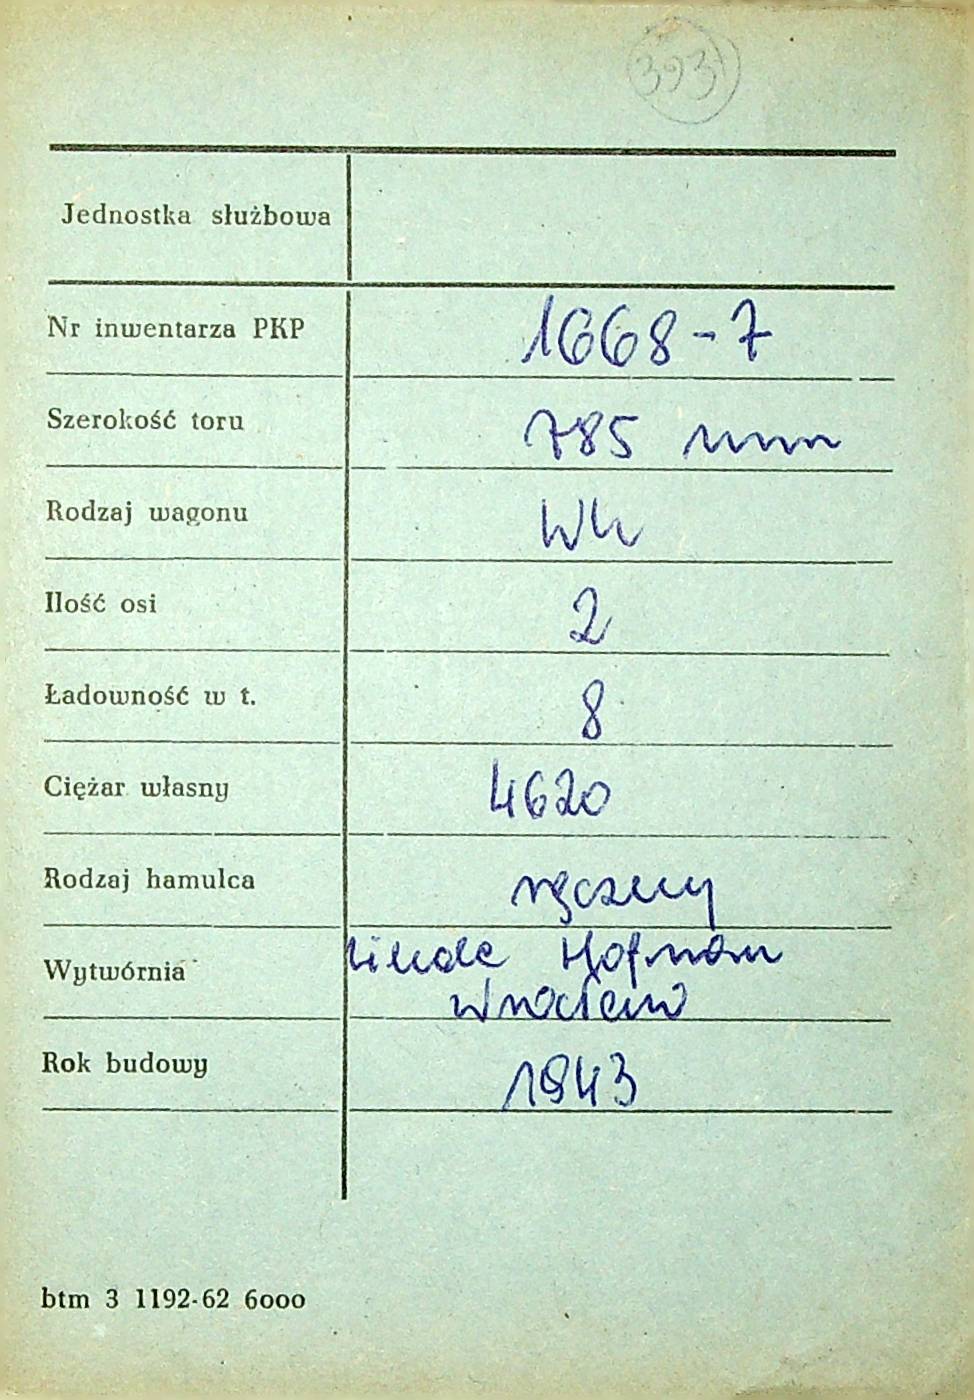 393
Jednostka służbowa
Nr inwentarza PKP 1668-7
Szerokość toru 785 mm
Rodzaj wagonu Wh
Ilość osi 2
Ładowność w t. 8
Ciężar własny 4620
Rodzaj hamulca ręczny
Wytwórnia Linde Hofman
Wrocław
Rok budowy 1943
btm 3 1192-62 6000